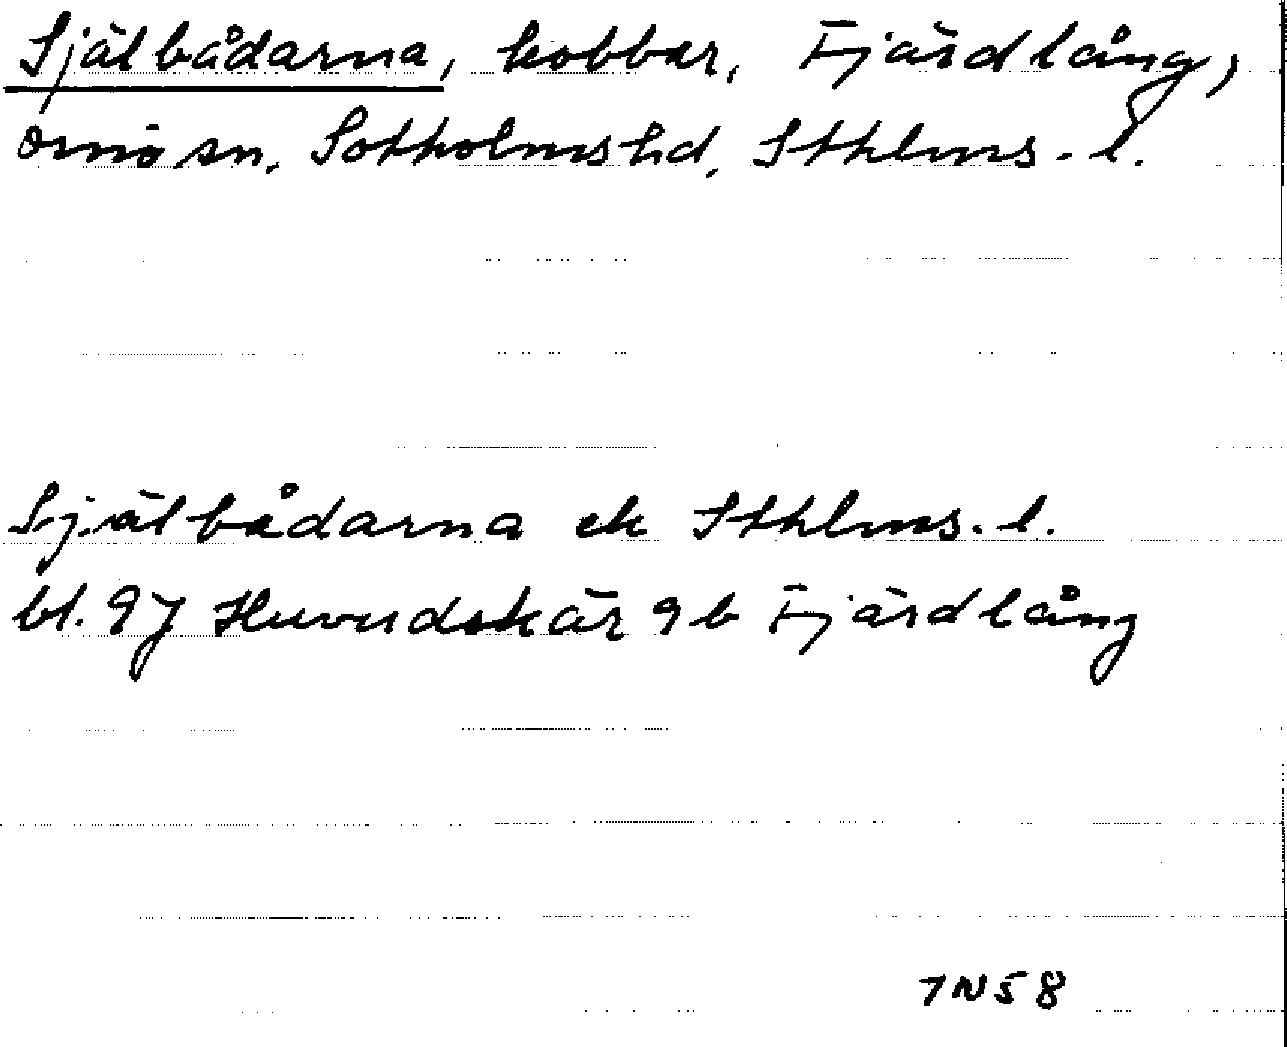 Själbådarna, kobbar, Fjärdlång,
Ornö sn, Sotholms hd, Sthlms. l.
Själbådarna ek Sthlms. l.
bl. 97 Huvudskär 9b Fjärdlång
7N58